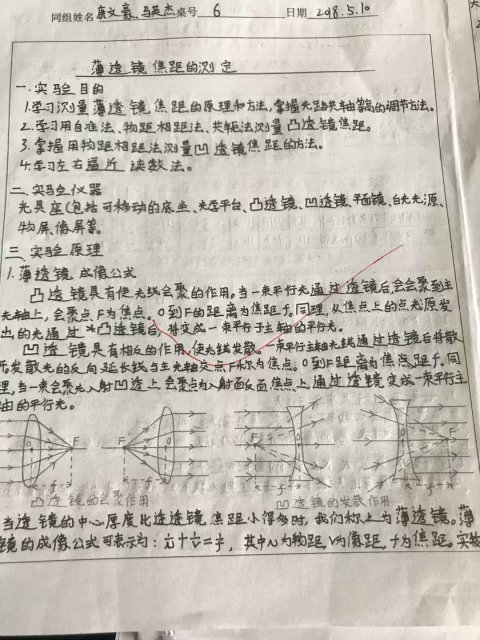 同组姓名 康文豪、马英杰 桌号 6 日期 2018.5.10
薄透镜焦距的测定
一.实验目的
1.学习测量薄透镜焦距的原理和方法,掌握光路共轴等高的调节方法。
2.学习用自准法、物距相距法、共轭法测量凸透镜焦距。
3.掌握用物距相距法测量凹透镜焦距的方法。
4.学习左右逼近读数法。
二.实验仪器
光具座(包括可移动的底坐、光学平台、凸透镜、凹透镜、平面镜、白光光源、
物屏、像屏等。
三.实验原理
1.薄透镜成像公式
凸透镜具有使光线会聚的作用。当一束平行光通过透镜后会会聚到主
光轴上,会聚点F为焦点。O到F的距离为焦距f。同理,从焦点上的点光源发
出的光通过凸透镜后,将变成一束平行于主轴的平行光。
凹透镜具有相反的作用,使光线发散。一束平行主轴光线通过透镜后将散
开发散光的反向延长线与主光轴交点F称为焦点。O到F距离为焦距f。同
理,当一束会聚光入射凹透上,会聚点为入射面反面焦点上,通过透镜变成一束平行主
轴的平行光。
O F F O
f f
F O O F
f f
凸透镜的会聚作用 凹透镜的发散作用
当透镜的中心厚度比透透镜焦距小得多时,我们称之为薄透镜。薄
透镜的成像公式可表示为:1/u+1/v=1/f,其中u为物距,v为像距,f为焦距。实验